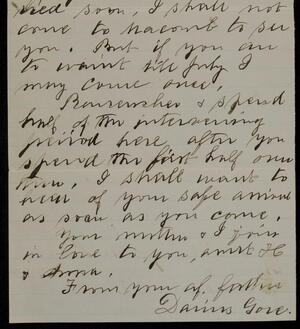 ried soon, I shall not
come to Macomb to see
you. But if you are
to wait till July I
may come once,
Remember & spend
half of the intervening
period here, after you
spend the first half over
there. I shall want to
hear of your safe arrival
as soon as you come.
Your mother & I join
in love to you, aunt H
& Anna.
From your af. father
Darius Gore.